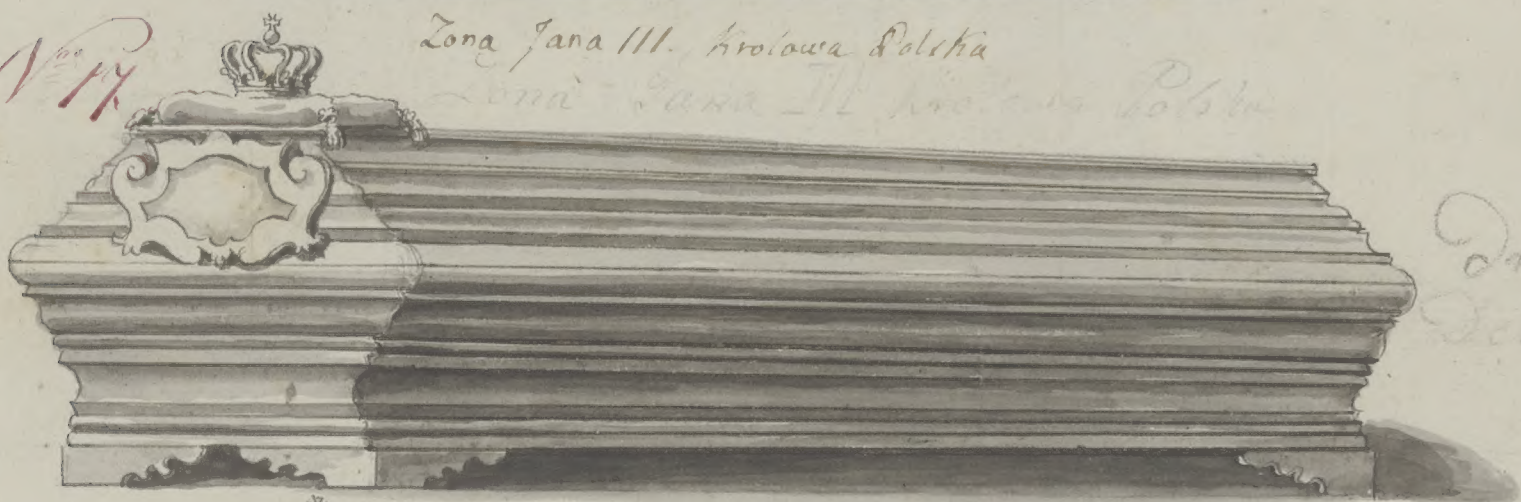 Nro 17.
Zona Jana III. Krolowa Polska
Zona Jana III Krolowa Polska